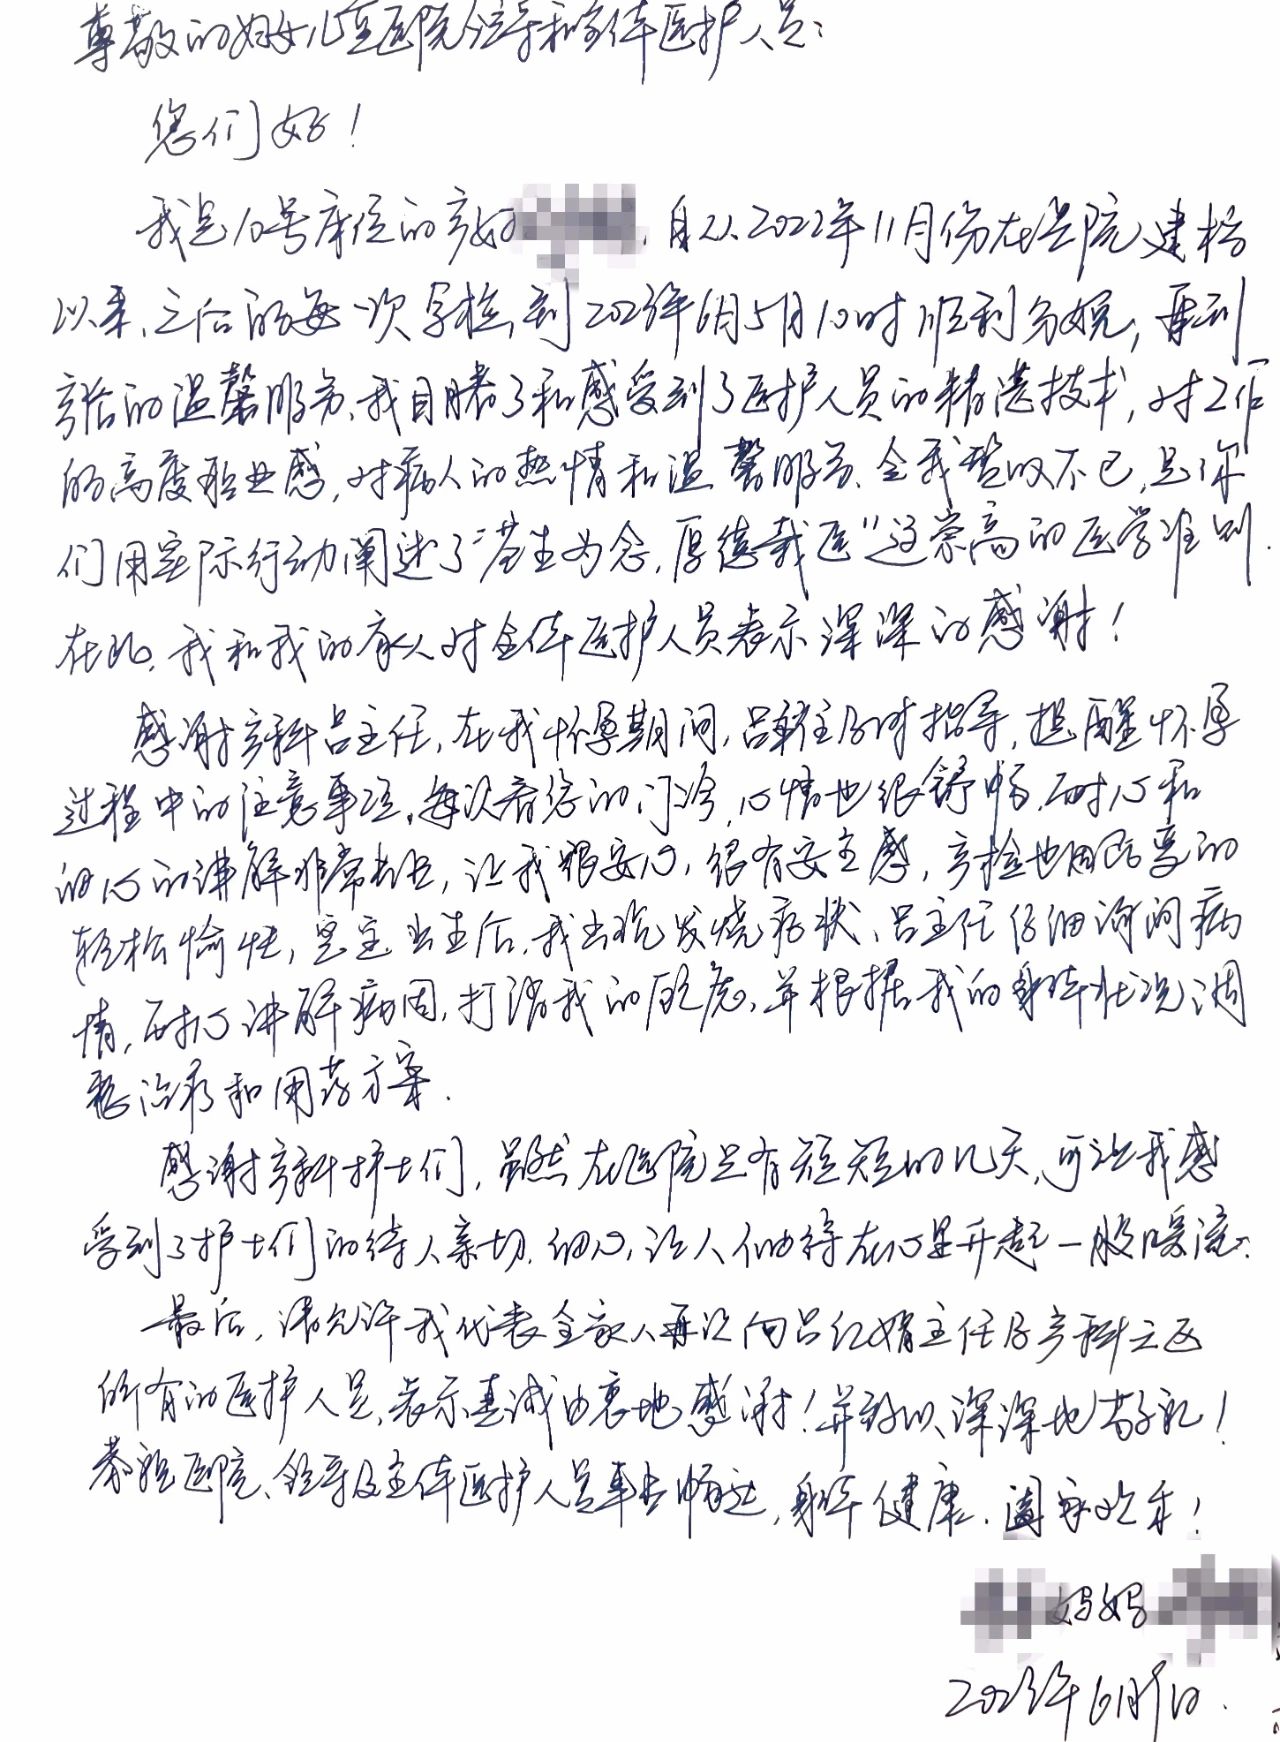 尊敬的妇女儿童医院领导和全体医护人员：
您们好！
我是10号床位的产妇，自从2022年11月份在医院建档
以来，之后的每一次孕检，到2023年6月5日10时顺利分娩，再到
产后的温馨服务，我目睹了和感受到了医护人员的精湛技术，对工作
的高度职业感，对病人的热情和温馨服务，令我赞叹不已，是你
们用实际行动阐述了“苍生为念，厚德载医”这崇高的医学准则.
在此，我和我的家人对全体医护人员表示深深的感谢！
感谢产科吕主任，在我怀孕期间，吕主任及时指导，提醒怀孕
过程中的注意事项，每次看您的门诊，心情也很舒畅，耐心和
细心的讲解非常专业，让我很安心，很有安全感，产检也因此变的
轻松愉快，宝宝出生后，我出现发烧症状，吕主任仔细询问病
情，耐心讲解病因，打消我的顾虑，并根据我的身体状况调
整治疗和用药方案.
感谢产科护士们，虽然在医院只有短短的几天，可让我感
受到了护士们的待人亲切，细心，让人倍感在心里升起一股暖流.
最后，请允许我代表全家人再次向吕红娟主任及产科二区
所有的医护人员，表示真诚由衷地感谢！并致以深深地敬礼！
恭祝医院、领导及全体医护人员事业顺达，身体健康，阖家欢乐！
妈妈
2023年6月9日.